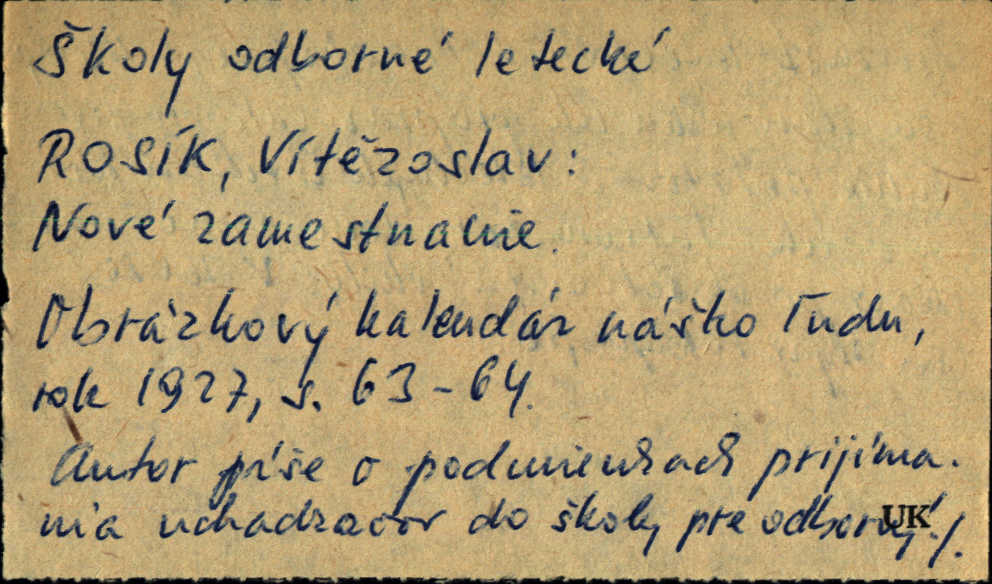 Školy odborné letecké
ROSÍK, Vítězoslav:
Nové zamestnanie.
Obrázkový kalendár nášho ľudu,
rok 1927, s. 63-64.
Autor píše o podmienkach prijíma-
nia uchadzačov do školy pre odborný ./.
UK